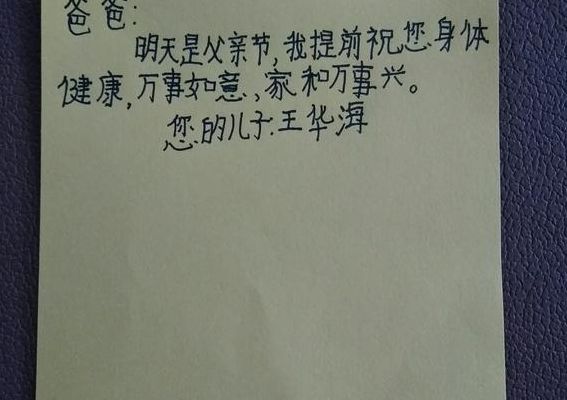 爸爸:
明天是父亲节,我提前祝您身体
健康,万事如意、家和万事兴。
您的儿子:王华海